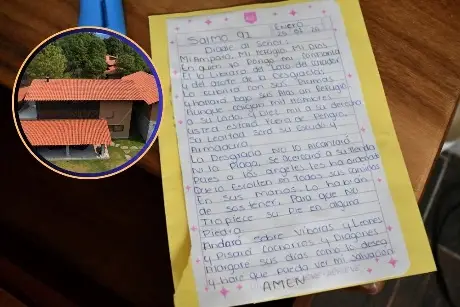 Salmo 91 Enero
Digale al Señor:
Mi Amparo, Mi refugio, Mi Dios
En quien yo Pongo mi confianza
El lo Librara del Lazo del cazador
y del azote de la Desgracia
Lo cubrira con sus Plumas
y Hallara bajo sus Alas un Refugio
Aunque caigan mil hombres
a su Lado y diez mil a su derecha
Usted estará fuera de Peligro.
Su Lealtad será su escudo y
Armadura.
La Desgracia No lo alcanzará
Ni la Plaga se acercará a su tienda
Pues a los angeles les ha ordenado
Que lo escolten en todos sus caminos
En sus manos Lo habrán
de sostener, Para que No
Tropiece su Pie en alguna
Piedra
Andará sobre Viboras y Leones
y Pisará cachorros y Dragones
Alargaré sus dias como lo desea
y haré que pueda ver mi salvación
AMEN